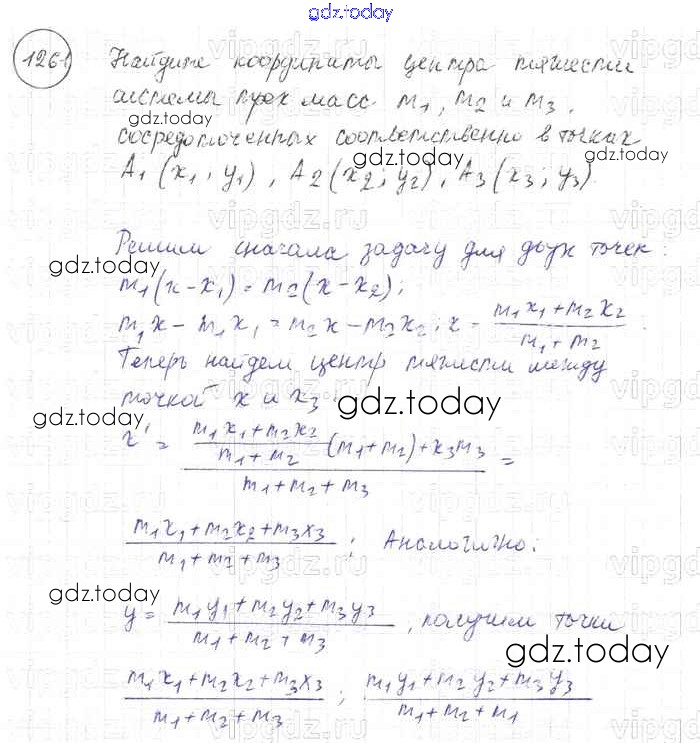 gdz.today
1261 Найдите координаты центра тяжести
системы трех масс m₁, m₂ и m₃,
gdz.today
сосредоточенных соответственно в точках
gdz.today
gdz.today
A₁(x₁; y₁), A₂(x₂; y₂), A₃(x₃; y₃).
Решим сначала задачу для двух точек:
gdz.today
m₁(x-x₁) = m₂(x-x₂);
m₁x - m₁x₁ = m₂x - m₂x₂; x = (m₁x₁+m₂x₂)/(m₁+m₂)
Теперь найдем центр тяжести между
точкой x и x₃
gdz.today
gdz.today
x' = ((m₁x₁+m₂x₂)/(m₁+m₂) (m₁+m₂)+x₃m₃)/(m₁+m₂+m₃) =
(m₁x₁+m₂x₂+m₃x₃)/(m₁+m₂+m₃); Аналогично:
gdz.today
y = (m₁y₁+m₂y₂+m₃y₃)/(m₁+m₂+m₃), получим точки
gdz.today
(m₁x₁+m₂x₂+m₃x₃)/(m₁+m₂+m₃); (m₁y₁+m₂y₂+m₃y₃)/(m₁+m₂+m₁)
gdz.today